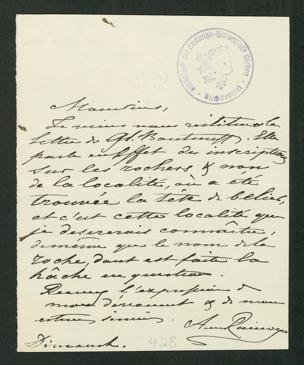 Monsieur,
Je viens vous restituer la
lettre de
parle en effet des inscriptions
sur les rochers & non
de la localité, où a été
trouvée la tête de bélier,
et c'est cette localité que
je desirerais connaître,
de même que le nom de la
roche, dont est faite la
hâche en question.
Recevez l'expression de
mon dévouement & de mon
estime
Dimanche.
428